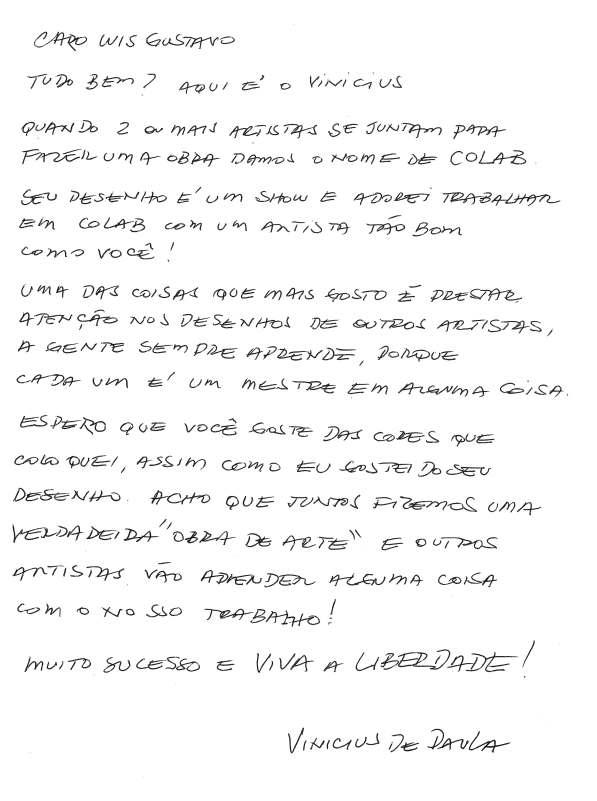 CARO LUIS GUSTAVO
TUDO BEM? AQUI É O VINICIUS
QUANDO 2 OU MAIS ARTISTAS SE JUNTAM PARA
FAZER UMA OBRA DAMOS O NOME DE COLAB.
SEU DESENHO É UM SHOW E ADOREI TRABALHAR
EM COLAB COM UM ARTISTA TÃO BOM
COMO VOCÊ!
UMA DAS COISAS QUE MAIS GOSTO É PRESTAR
ATENÇÃO NOS DESENHOS DE OUTROS ARTISTAS,
A GENTE SEMPRE APRENDE, PORQUE
CADA UM É UM MESTRE EM ALGUMA COISA.
ESPERO QUE VOCÊ GOSTE DAS CORES QUE
COLOQUEI, ASSIM COMO EU GOSTEI DO SEU
DESENHO. ACHO QUE JUNTOS FIZEMOS UMA
VERDADEIRA "OBRA DE ARTE" E OUTROS
ARTISTAS VÃO APRENDER ALGUMA COISA
COM O NOSSO TRABALHO!
MUITO SUCESSO E VIVA A LIBERDADE!
VINICIUS DE PAULA